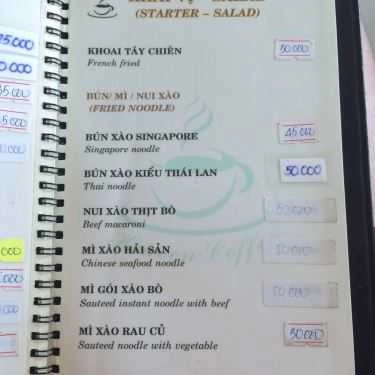 (STARTER – SALAD)
KHOAI TÂY CHIÊN 50.000
French fried
BÚN/ MÌ / NUI XÀO
(FRIED NOODLE)
BÚN XÀO SINGAPORE 45.000
Singapore noodle
BÚN XÀO KIỂU THÁI LAN 50.000
Thai noodle
NUI XÀO THỊT BÒ 50.000
Beef macaroni
MÌ XÀO HẢI SẢN 50.000
Chinese seafood noodle
MÌ GÓI XÀO BÒ 50.000
Sauteed instant noodle with beef
MÌ XÀO RAU CỦ 50.000
Sauteed noodle with vegetable